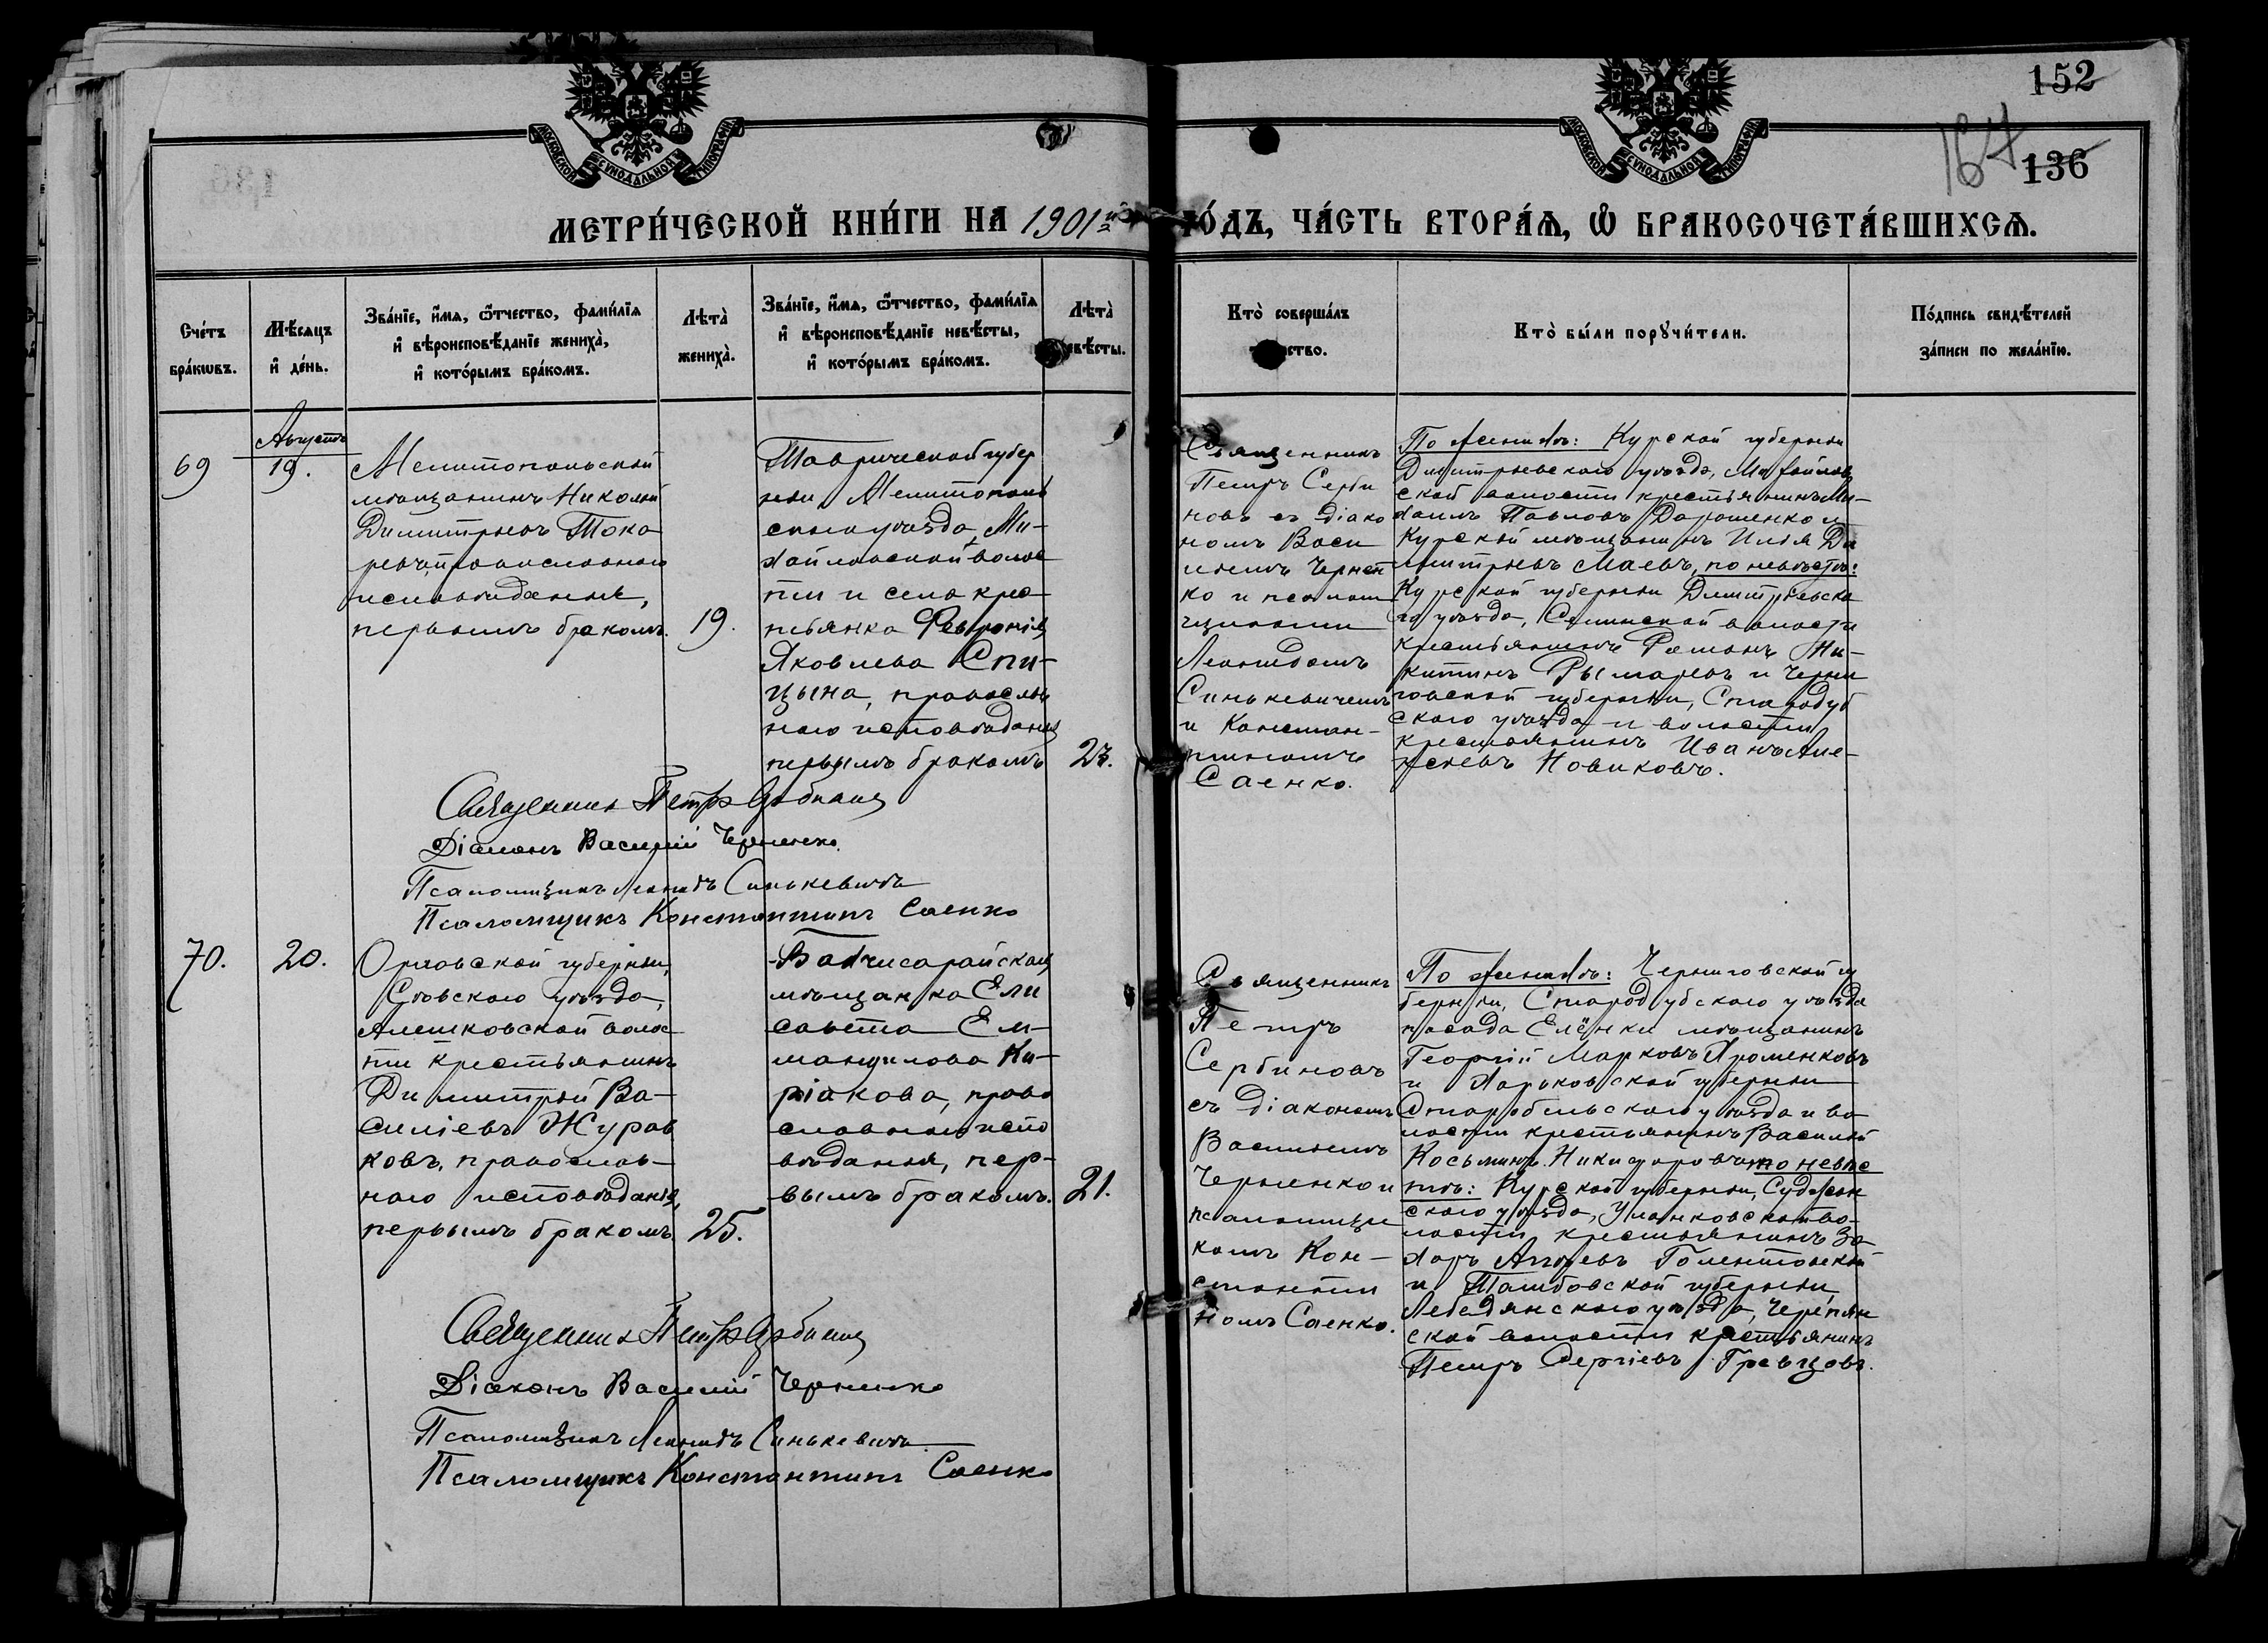 152
164
136
МОСКОВСКОЙ СѴНОДАЛЬНОЙ ТИПОГРАФІИ
МОСКОВСКОЙ СѴНОДАЛЬНОЙ ТИПОГРАФІИ
МЕТРИ́ЧЕСКОЙ КНИ́ГИ НА 1901й
ГО́ДЪ, ЧА́СТЬ ВТОРА́Ѧ, Ѡ҆ БРАКОСОЧЕТА́ВШИХСѦ.
Сче́тъ
бра́кѡвъ.
Мѣ́сѧцъ
и҆ де́нь.
Зва́нїе, и҆́мѧ, ѻ҆́тчество, фами́лїѧ
и҆ вѣроисповѣ́данїе жениха̀,
и҆ кото́рымъ бра́комъ.
Лѣта̀
жениха̀.
Зва́нїе, и҆́мѧ, ѻ҆́тчество, фами́лїѧ
и҆ вѣроисповѣ́данїе невѣ́сты,
и҆ кото́рымъ бра́комъ.
Лѣта̀
невѣ́сты.
Кто̀ соверша́лъ
таинство.
Кто̀ бы́ли порꙋчи́тели.
По́дпись свидѣ́телей
за́писи по жела́нїю.
69
Августъ
19.
Мелитопольскій
мѣщанинъ Николай
Димитріевъ Тока
ревъ, православнаго
исповѣданія,
первымъ бракомъ.
19.
Таврической губер
ніи Мелитополь
скаго уѣзда, Ми-
хайловской волос
ти и села крес
тьянка Февронія
Яковлева Спи-
цына, православ
наго исповѣданія
первымъ бракомъ
23.
Священникъ
Петръ Серби
новъ съ діако
номъ Васи
ліемъ Чернен
ко и псалом
щиками
Леонидомъ
Синькевичемъ
и Констан-
тиномъ
Саенко.
По женихѣ: Курской губерніи
Димитріевскаго уѣзда, Михайлов
ской волости крестьянинъ Ми-
хаилъ Павловъ Дорошенко и
Курскій мѣщанинъ Илья Ди
митріевъ Маевъ, по невѣстѣ:
Курской губерніи Димитріевска
го уѣзда, Селинской волости
крестьянинъ Романъ Ни-
китинъ Рымаревъ и Черни
говской губерніи, Стародуб
скаго уѣзда и волости
крестьянинъ Иванъ Але-
ксѣевъ Новиковъ.
Священникъ Петръ Сербиновъ
Діаконъ Василій Черненко.
Псаломщикъ Леонидъ Синькевичъ
Псаломщикъ Константинъ Саенко
70.
20.
Орловской губерніи,
Сѣвскаго уѣзда,
Алешковской волос
ти крестьянинъ
Димитрій Ва-
силіевъ Журав
ковъ, православ-
наго исповѣданія,
первымъ бракомъ
25.
Бахчисарайская
мѣщанка Ели
савета Ем-
мануилова Ки-
ріакова, право
славнаго испо
вѣданія, пер-
вымъ бракомъ.
21.
Священникъ
Петръ
Сербиновъ
съ діакономъ
Василіемъ
Черненко и
псаломщи
комъ Кон-
станти
номъ Саенко.
По женихѣ: Черниговской гу
берніи, Стародубскаго уѣзда
посада Елёнки мѣщанинъ
Георгій Марковъ Яроменковъ
и Харьковской губерніи
Старобѣльскаго уѣзда и во
лости крестьянинъ Василій
Косьминъ Никифоровъ, по невѣс
тѣ: Курской губерніи, Суджан
скаго уѣзда, Уланковской во-
лости крестьянинъ За-
харъ Андреевъ Голентовскій
и Тамбовской губерніи,
Лебедянскаго уѣзда, Черепян
ской волости крестьянинъ
Петръ Сергіевъ Гревцовъ.
Священникъ Петръ Сербиновъ
Діаконъ Василій Черненко
Псаломщикъ Леонидъ Синькевичъ
Псаломщикъ Константинъ Саенко